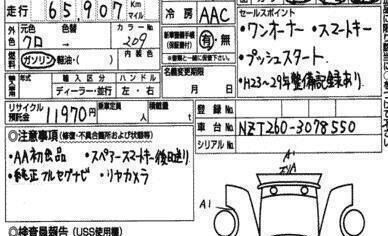 走行 65,907 Km マイル
冷房 AAC
セールスポイント
・ワンオーナー ・スマートキー
・プッシュスタート
・H23〜29年整備記録あり
外色 元色 色替
クロ
カラーNo. 209
内装色
ガソリン 軽油・( )
新車整備手帳(保証書付) 有・無
名義変更期限
月 日
輸入区分 ハンドル
ディーラー・並行 左・右
リサイクル預託金 11970円
乗車定員 人
積載量 t
登録No.
車台No. NZT260-3078550
シリアルNo.
◎注意事項(修復・不具合箇所および状態等)
・AA初食品 ・スペアースマートキー後日送り
・純正フルセグナビ ・リヤカメラ
A1
A1
◎検査員報告(USS使用欄)